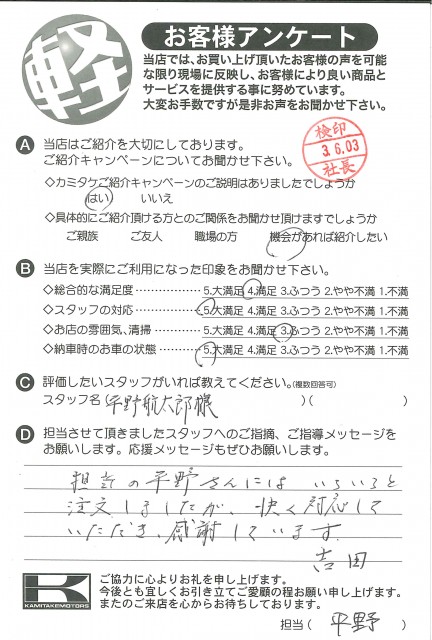 軽
お客様アンケート
当店では、お買い上げ頂いたお客様の声を可能
な限り現場に反映し、お客様により良い商品と
サービスを提供する事に努めています。
大変お手数ですが是非お声をお聞かせ下さい。
検印
3.6.03
社長
A 当店はご紹介を大切にしております。
ご紹介キャンペーンについてお聞かせ下さい。
◇カミタケご紹介キャンペーンのご説明はありましたでしょうか
はい いいえ
◇具体的にご紹介頂ける方とのご関係をお聞かせ頂けますでしょうか
ご親族 ご友人 職場の方 機会があれば紹介したい
B 当店を実際にご利用になった印象をお聞かせ下さい。
◇総合的な満足度……………5.大満足 4.満足 3.ふつう 2.やや不満 1.不満
◇スタッフの対応……………5.大満足 4.満足 3.ふつう 2.やや不満 1.不満
◇お店の雰囲気、清掃…………5.大満足 4.満足 3.ふつう 2.やや不満 1.不満
◇納車時のお車の状態…………5.大満足 4.満足 3.ふつう 2.やや不満 1.不満
C 評価したいスタッフがいれば教えてください。(複数回答可)
スタッフ名(平野航太郎様 )( )
D 担当させて頂きましたスタッフへのご指摘、ご指導メッセージを
お願いします。応援メッセージもぜひお願いします。
担当の平野さんには いろいろと
注文しましたが、快く対応して
いただき、感謝しています。
吉田
K
KAMITAKEMOTORS
ご協力に心よりお礼を申し上げます。
今後とも宜しくお引き立てご愛顧の程お願い申し上げます。
またのご来店を心からお待ちしております。
担当(平野)